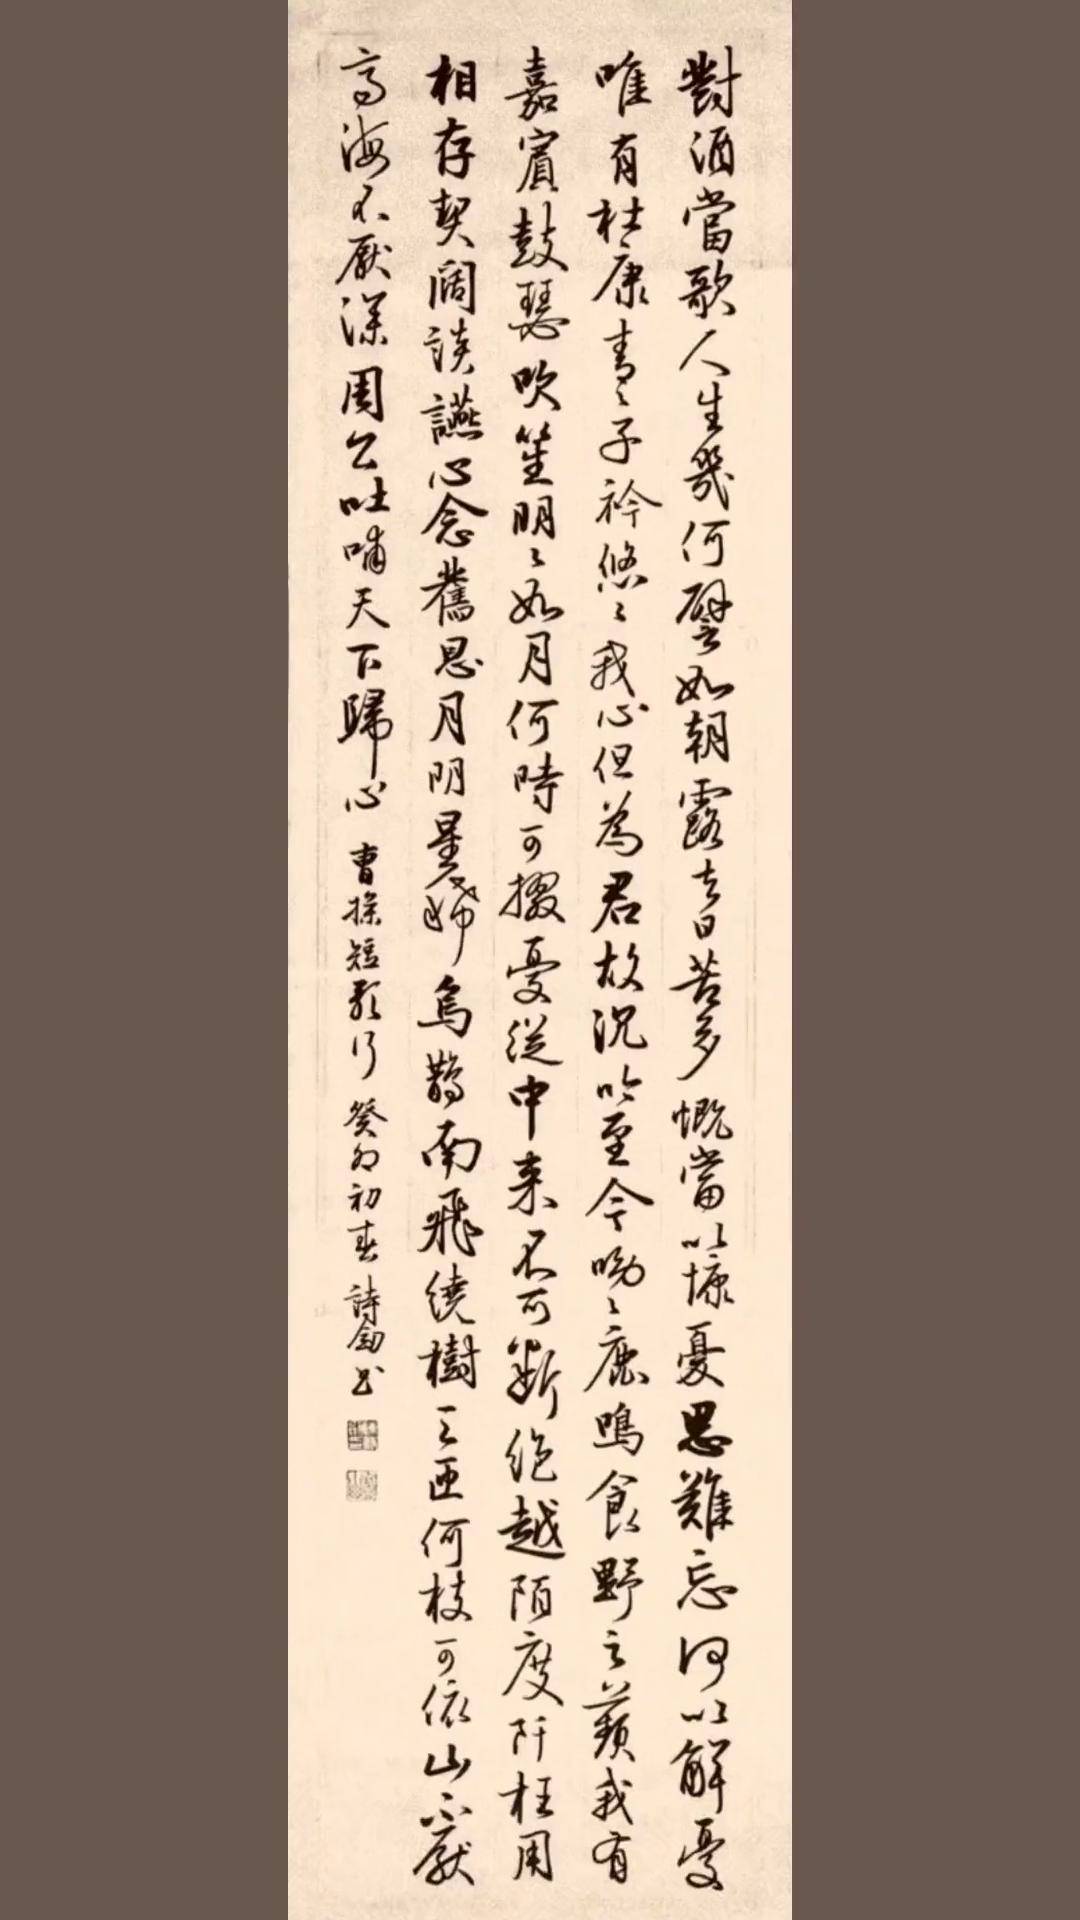 對酒當歌人生幾何譬如朝露去日苦多慨當以慷憂思難忘何以解憂
唯有杜康青〻子衿悠〻我心但為君故沉吟至今呦〻鹿鳴食野之蘋我有
嘉賓鼓瑟吹笙明〻如月何時可掇憂從中来不可斷絕越陌度阡枉用
相存契闊談讌心念舊恩月明星稀烏鵲南飛繞樹三匝何枝可依山不厭
高海不厭深周公吐哺天下歸心 曹操短歌行 癸卯初春 詩書